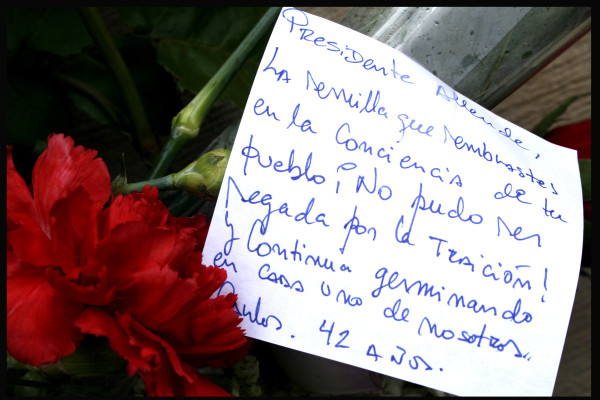 Presidente Allende,
LA semilla que sembrastes
en la Conciencia de tu
pueblo ¡NO pudo ser
segada por la TRAICIÓN!
y Continua germinando
en CADA uno de nosotros..
Carlos. 42 AÑOS.